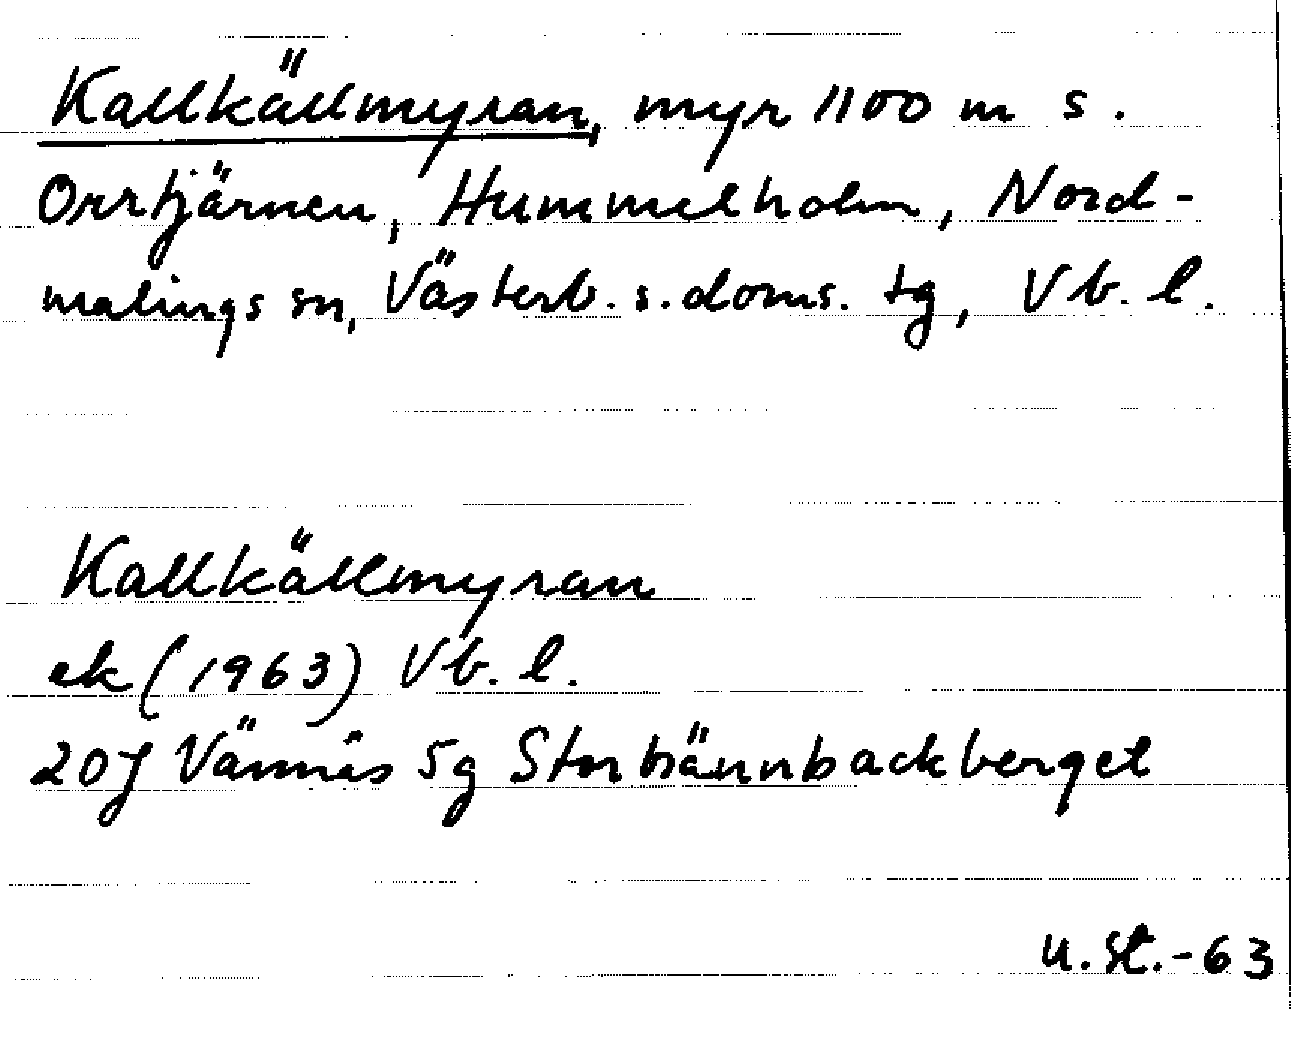 Kallkällmyran, myr 1100 m s.
Orrtjärnen, Hummelholm, Nord-
malings sn, Västerb. s. doms. tg, Vb. l.
Kallkällmyran
ek (1963) Vb. l.
20J Vännäs 5g Storbrännbackberget
U. St. -63